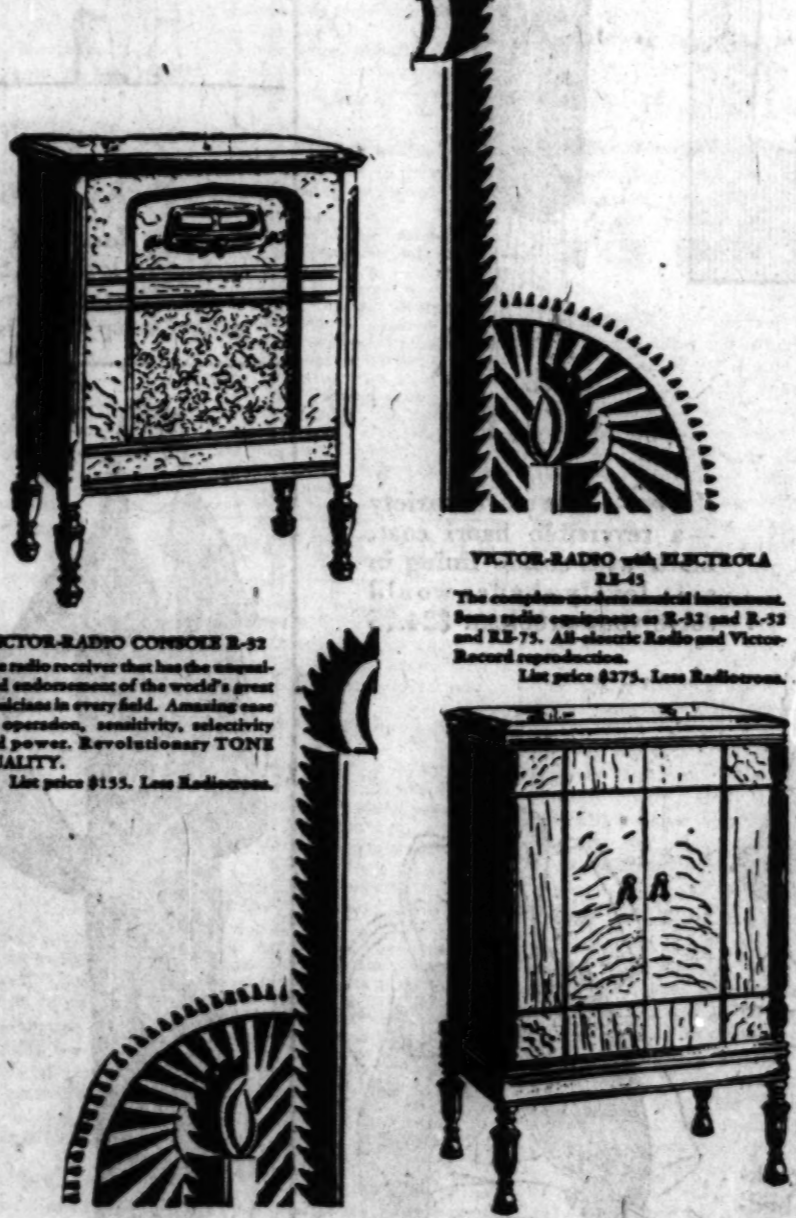 VICTOR-RADIO with ELECTROLA
RE-45
The complete modern musical instrument.
Same radio equipment as R-32 and R-52
and RE-75. All-electric Radio and Victor-
Record reproduction.
List price $275. Less Radiotrons.
ICTOR-RADIO CONSOLE R-32
e radio receiver that has the unquali-
d endorsement of the world's great
usicians in every field. Amazing ease
operation, sensitivity, selectivity
d power. Revolutionary TONE
UALITY.
List price $155. Less Radiotrons.